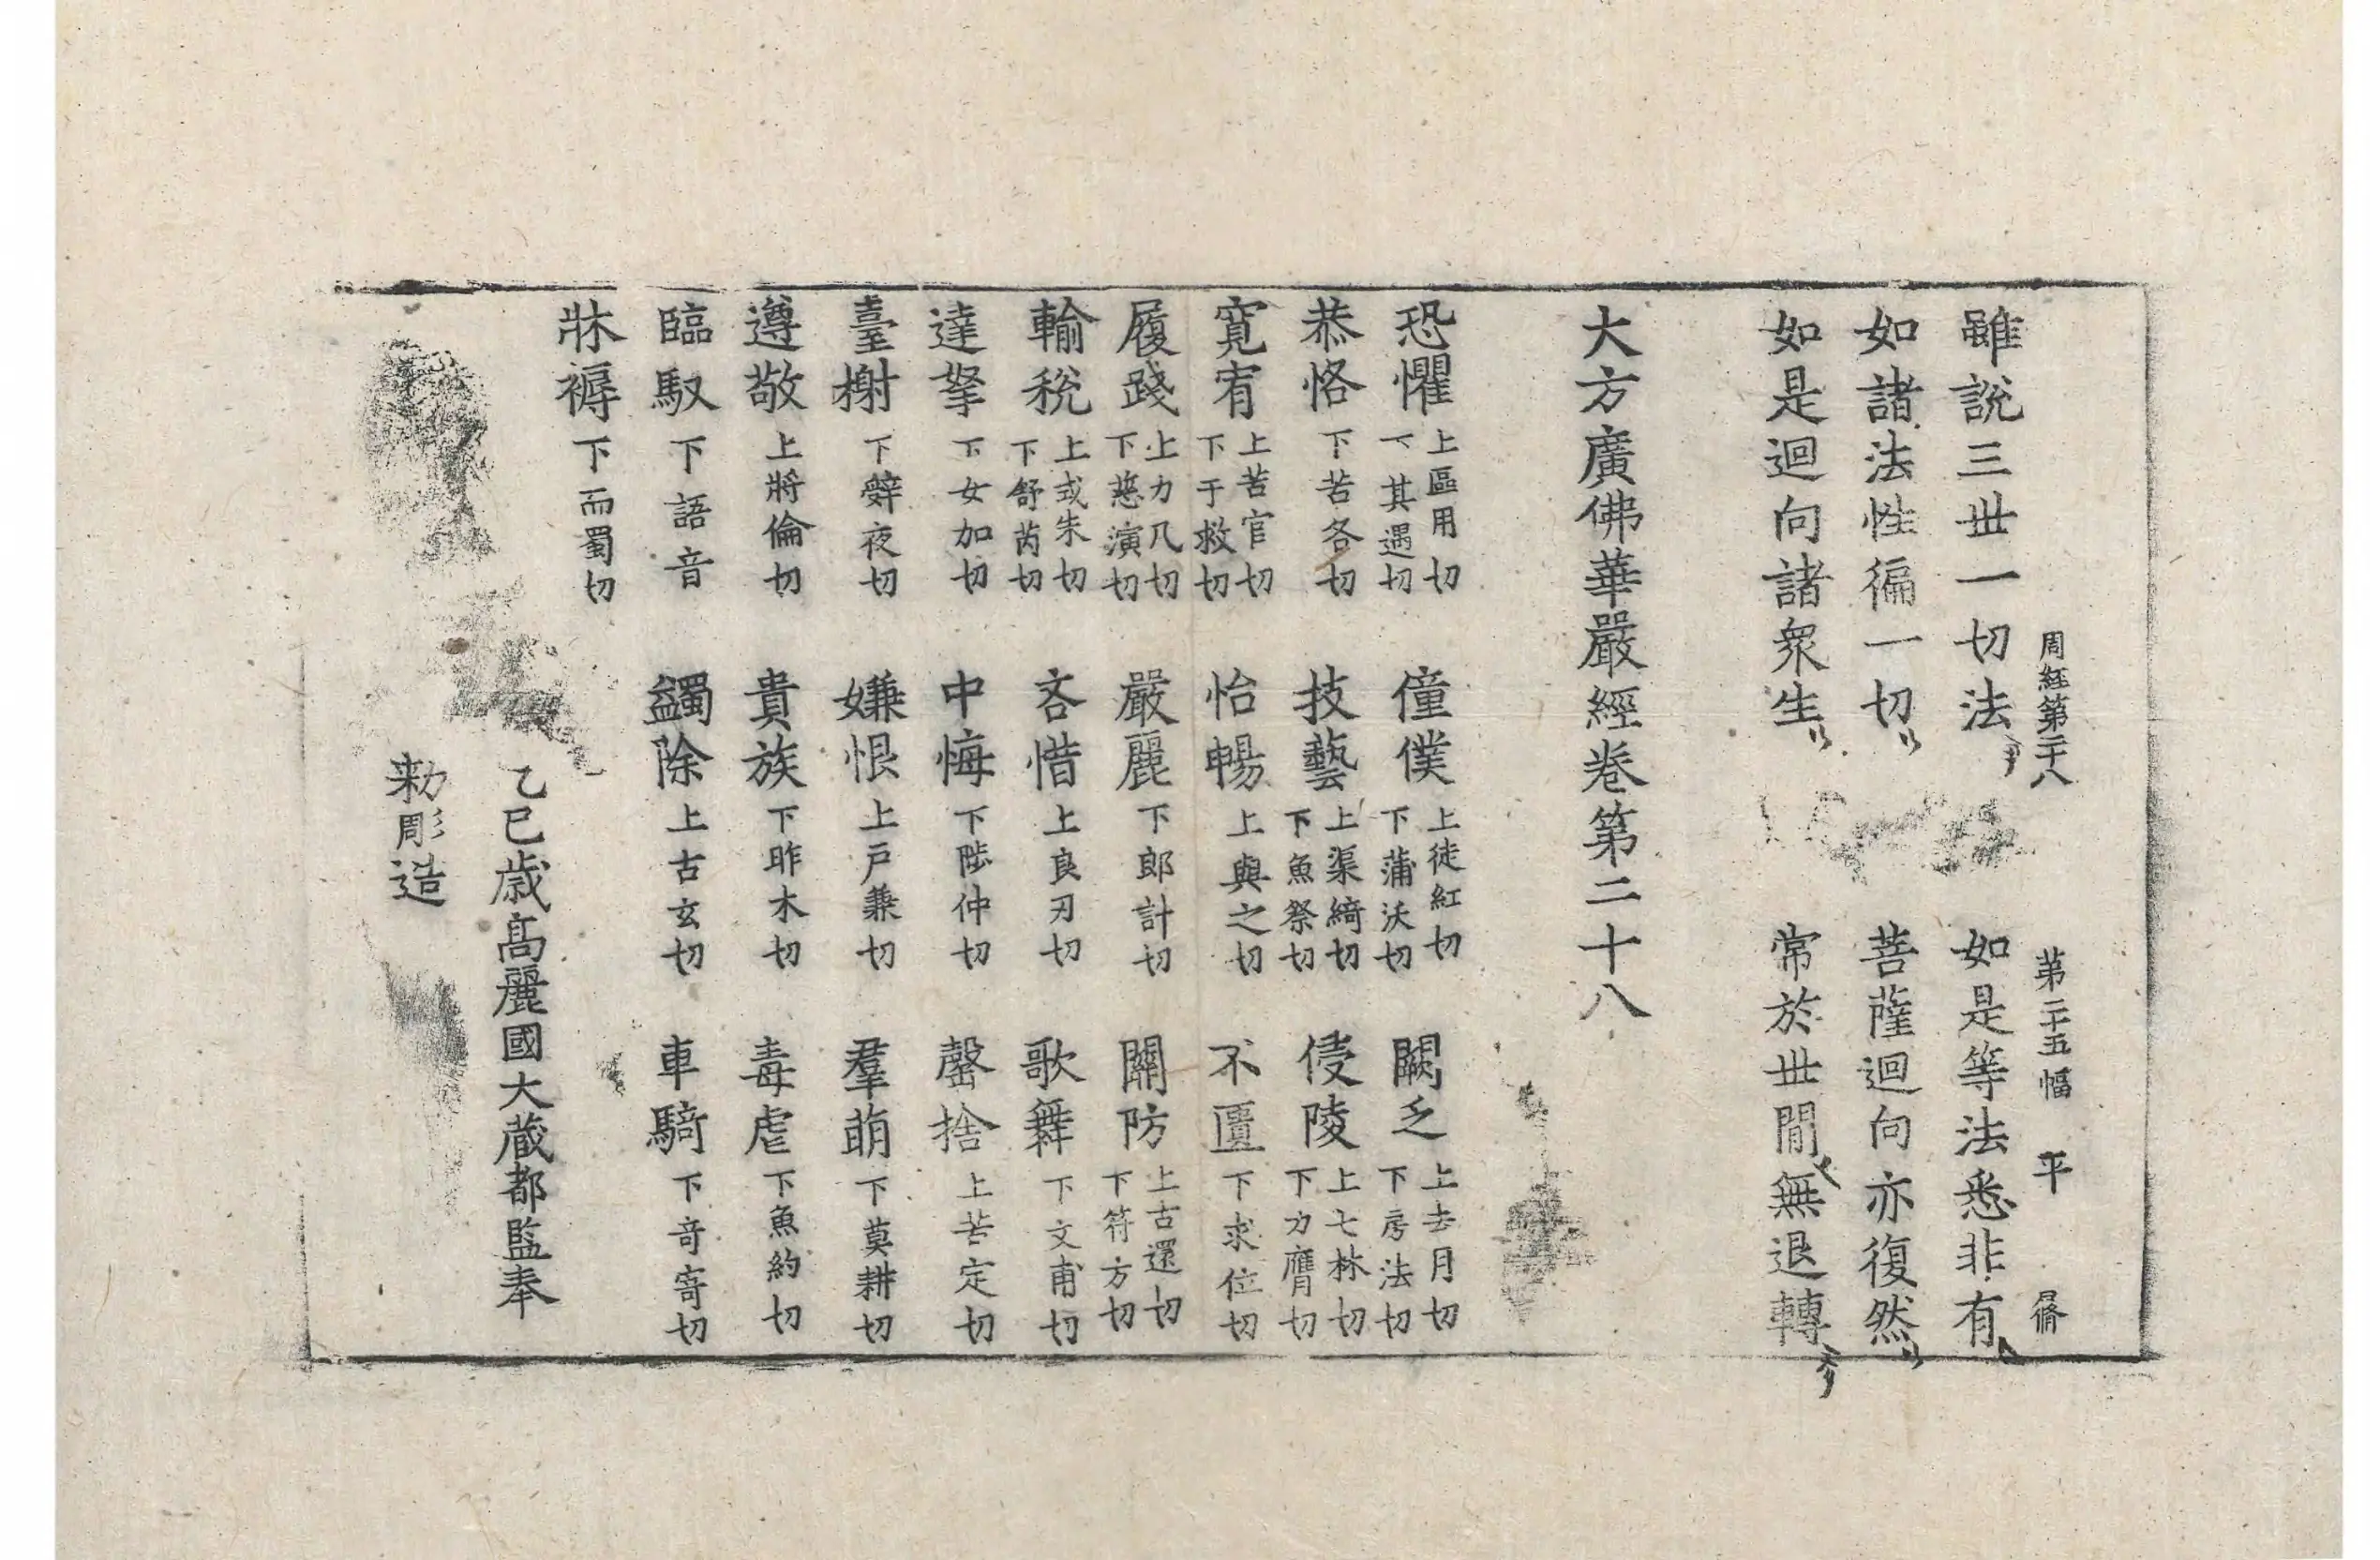 周経第二十八 第二十五幅 平 脩
雖說三世一切法 如是等法悉非有
如諸法性徧一切 菩薩迴向亦復然
如是迴向諸衆生 常於世閒無退轉
大方廣佛華嚴經卷第二十八
恐懼 上區用切下其遇切 僮僕 上徒紅切下蒲沃切 闕乏 上去月切下房法切
恭恪 下苦各切 技藝 上渠綺切下魚祭切 侵陵 上七林切下力膺切
寬宥 上苦官切下于救切 怡暢 上與之切 不匱 下求位切
履踐 上力几切下慈演切 嚴麗 下郎計切 關防 上古還切下符方切
輸稅 上式朱切下舒芮切 吝惜 上良刃切 歌舞 下文甫切
達拏 下女加切 中悔 下陟仲切 罄捨 上苦定切
臺榭 下辝夜切 嫌恨 上戸兼切 羣萌 下莫耕切
遵敬 上將倫切 貴族 下昨木切 毒虐 下魚約切
臨馭 下語音 蠲除 上古玄切 車騎 下奇寄切
牀褥 下而蜀切
乙巳歲高麗國大藏都監奉
勑彫造